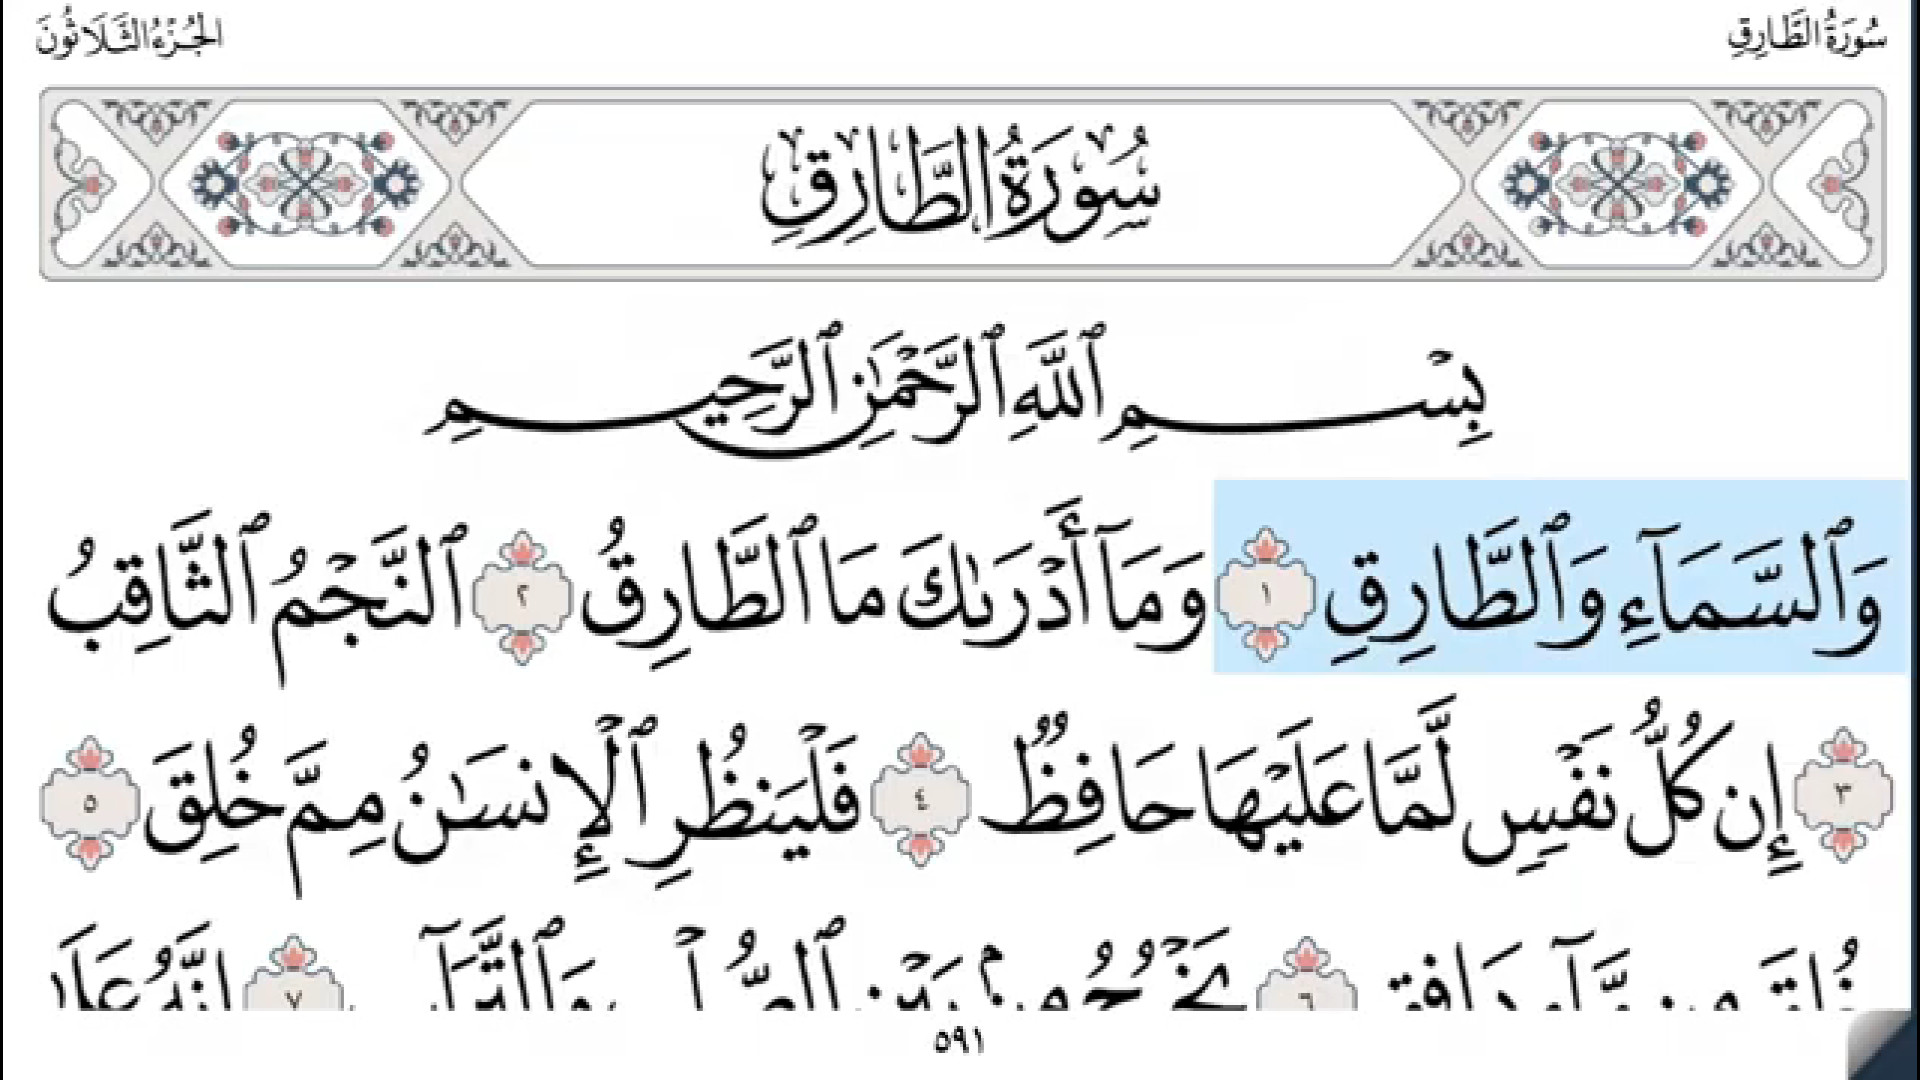 سُورَةُ الطَّارِقِ
الجُزْءُ الثَّلَاثُونَ
سُورَةُ الطَّارِقِ
بِسْمِ ٱللَّهِ ٱلرَّحْمَٰنِ ٱلرَّحِيمِ
وَٱلسَّمَآءِ وَٱلطَّارِقِ ١ وَمَآ أَدْرَىٰكَ مَا ٱلطَّارِقُ ٢ ٱلنَّجْمُ ٱلثَّاقِبُ
٣ إِن كُلُّ نَفْسٍ لَّمَّا عَلَيْهَا حَافِظٌ ٤ فَلْيَنظُرِ ٱلْإِنسَٰنُ مِمَّ خُلِقَ ٥
خُلِقَ مِن مَّآءٍ دَافِقٍ ٦ يَخْرُجُ مِنۢ بَيْنِ ٱلصُّلْبِ وَٱلتَّرَآئِبِ ٧ إِنَّهُۥ عَلَىٰ
٥٩١